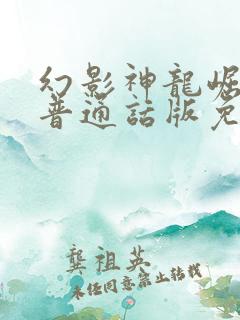 幻影神龍崛
普通話版免
龔祖英
未任同意禁止转载